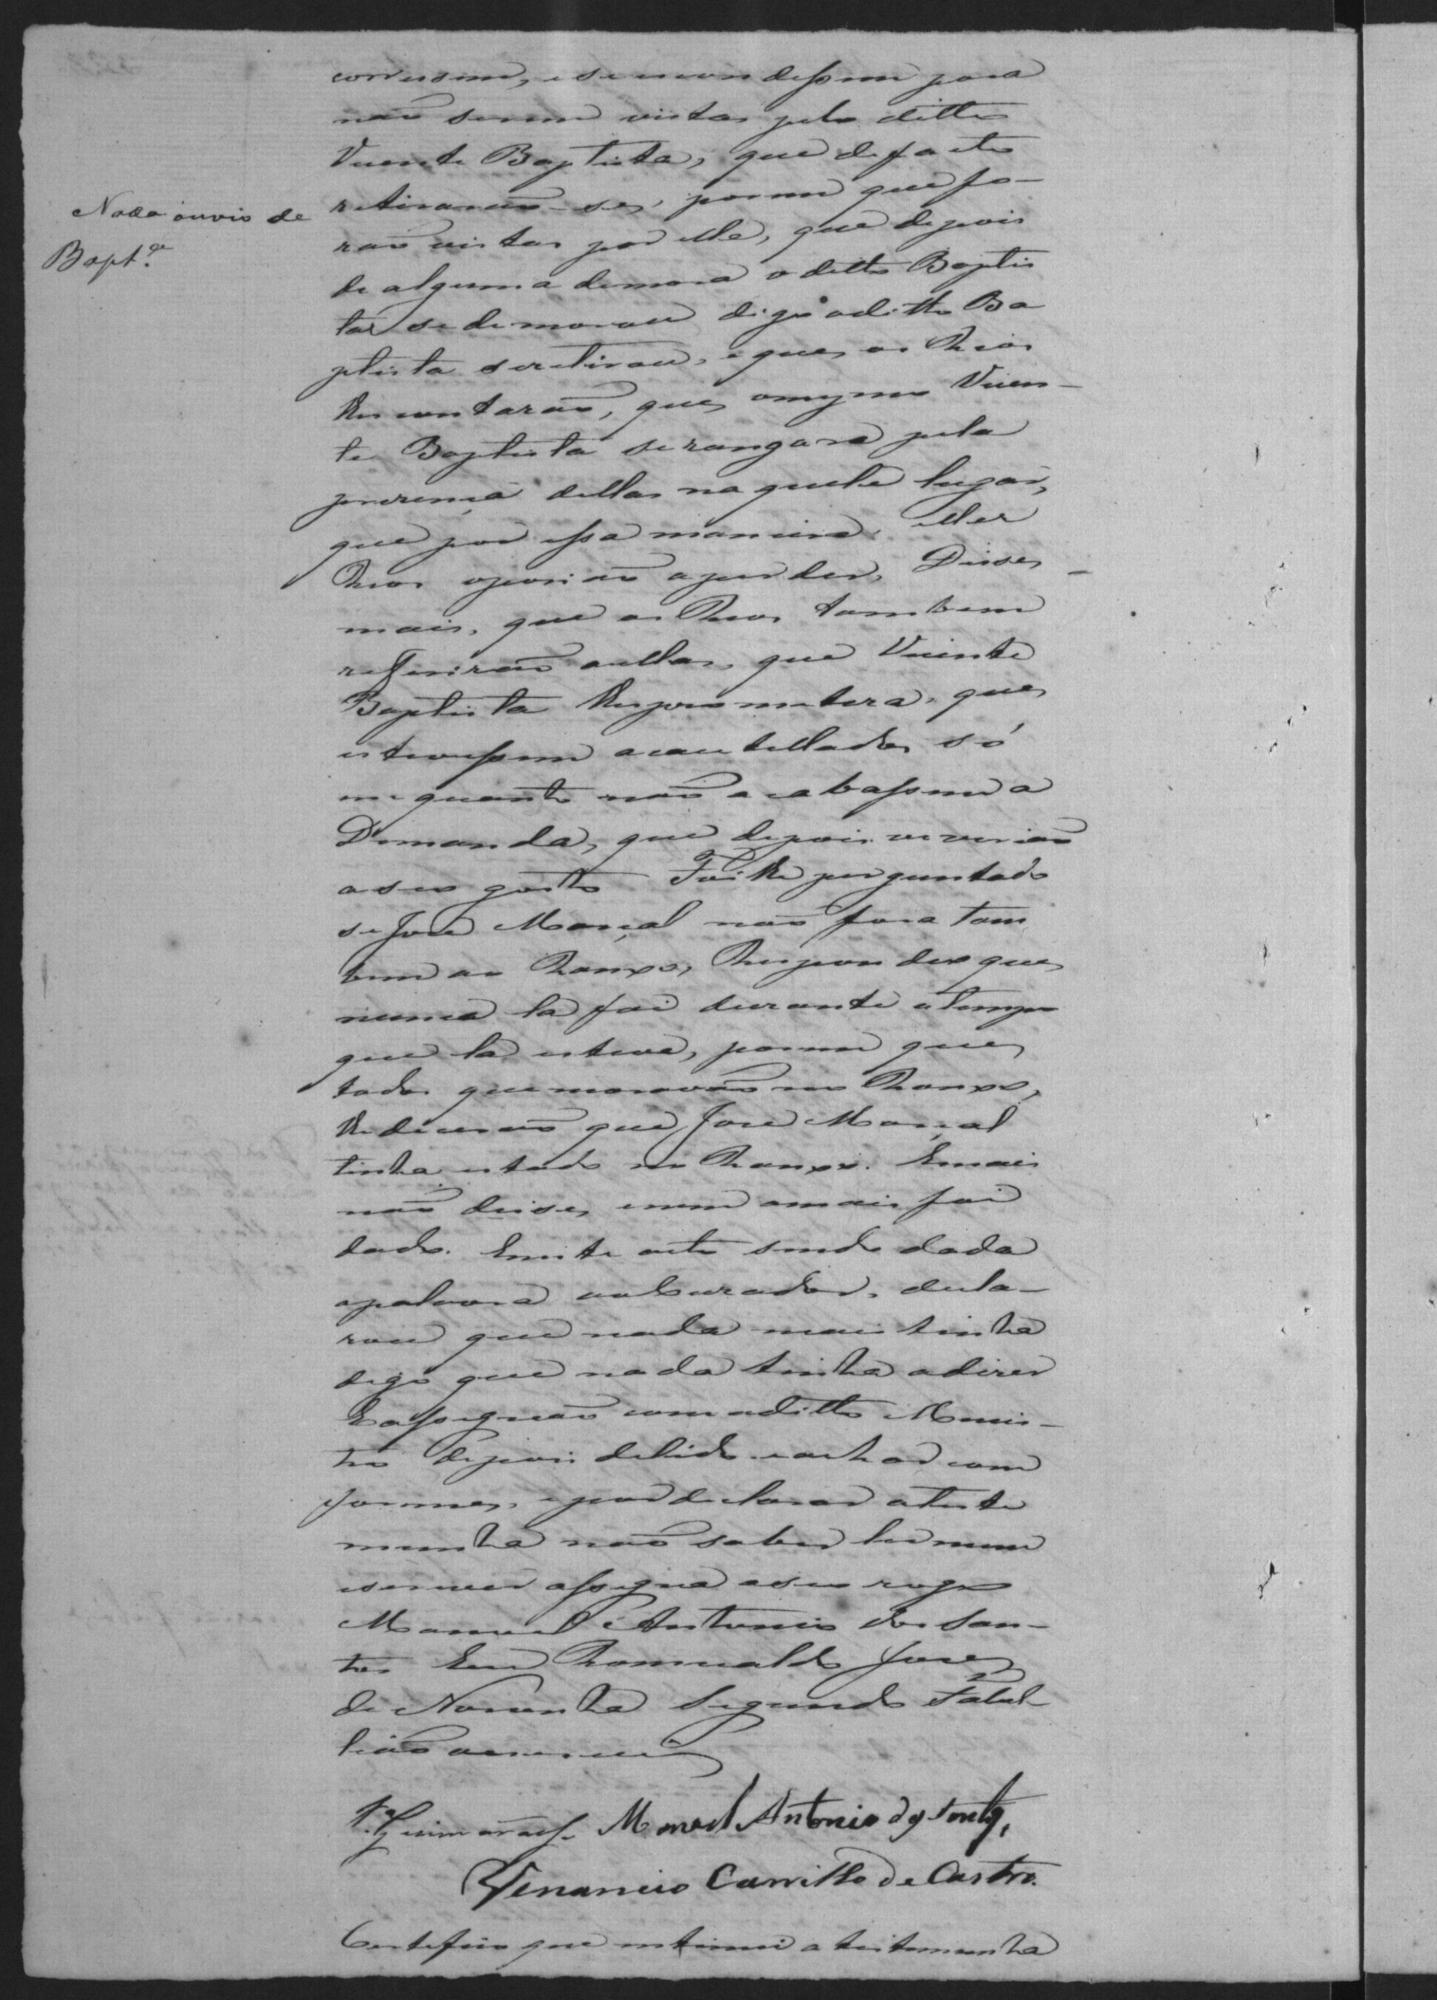 corressem, e se escondessem para
não serem vistas pelo ditto
Vicente Baptista, que de facto
retirarão-se, porem que fo-
Nada ouvio de
Bapt.ª
rão vistas por elle, que depois
de alguma demora o ditto Baptis
ta se demorou digo o ditto Ba
ptista se retirou, e que os Reos
lhes contarão, que o mesmo Vicen-
te Baptista se zangara pela
presença dellas naquelle lugar,
que por essa maneira elles
Reos a perder, Disse
mais, que os Reos tambem
referirão a ellas, que Vicente
Baptista lhes promettera, que
estivessem acautellados só
em quanto não acabassem a
Demanda, que depois viverião
a seu gosto Foi lhe perguntado
se José Marçal não fora tam
bem ao Ranxo, Respondeo que
nunca lá foi durante o tempo
que lá esteve, porem que
todos que moravão no Ranxo,
lhe diserão que José Marçal
tinha estado no Ranxo. E mais
não disse, e nem a mais foi
dado. E neste acto sendo dada
a palavra ao Curador, decla-
rou que nada mais tinha
digo que nada tinha a dizer
E assignão com o ditto Minis-
tro depois de lido e achar com
forme, e por declarar a teste
munha não saber ler nem
escrever assigna a seu rogo
Manoel Antonio dos San-
tos Eu Romualdo José
de Noronha Segundo Tabel-
lião o escrevi
Guimarães. Manoel Antonio dos Santos,
Venancio Carrilho de Castro.
Certifico que intimei a testemunha